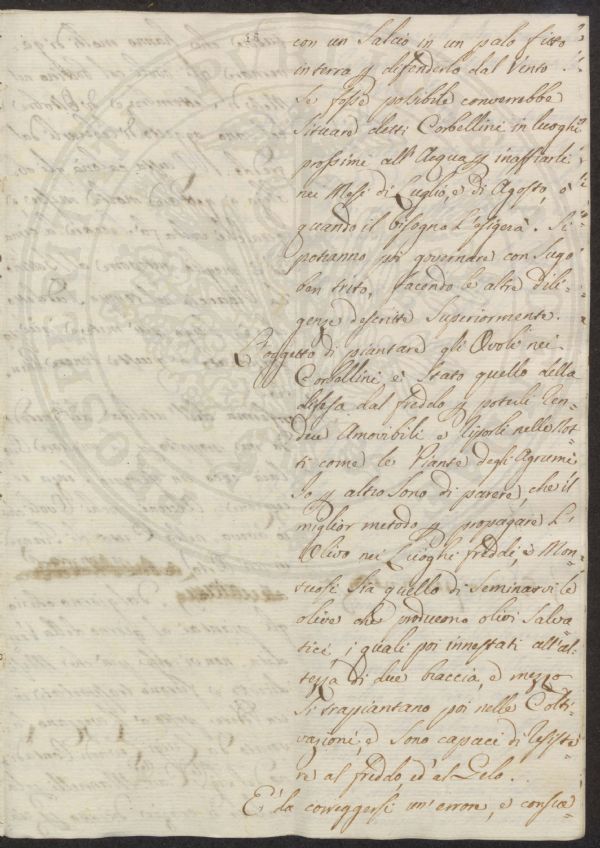 18
con un Salcio in un palo fitto
in terra p difenderlo dal Vento.
Se fosse possibile converrebbe
situare detti Corbellini in luoghi
prossime all'Acqua p inaffiarli
nei Mesi di Luglio, e di Agosto, o
quando il bisogno l'esigerà. Si
potranno poi governare con Sugo
ben trito, facendo le altre dili-
genze descritte Superiormente.
L'oggetto di piantare gli Ovoli nei
Corbellini è Stato quello della
difesa dal freddo p poterli ren-
dere Amovibili e riporli nelle Not-
ti come le Piante degli Agrumi
Io p altro sono di parere, che il
miglior metodo p propagare L'
Olivo nei Luoghi freddi, e Mon-
tuosi Sia quello di Seminarvi le
olive che producono olivi Salva
tici, i quali poi innestati all'al-
tezza di due braccia, e mezzo
Si trapiantano poi nelle Colti-
vazioni, e sono capaci di resiste-
re al freddo, ed al Gelo.
E' da correggersi un'errore, e consia=